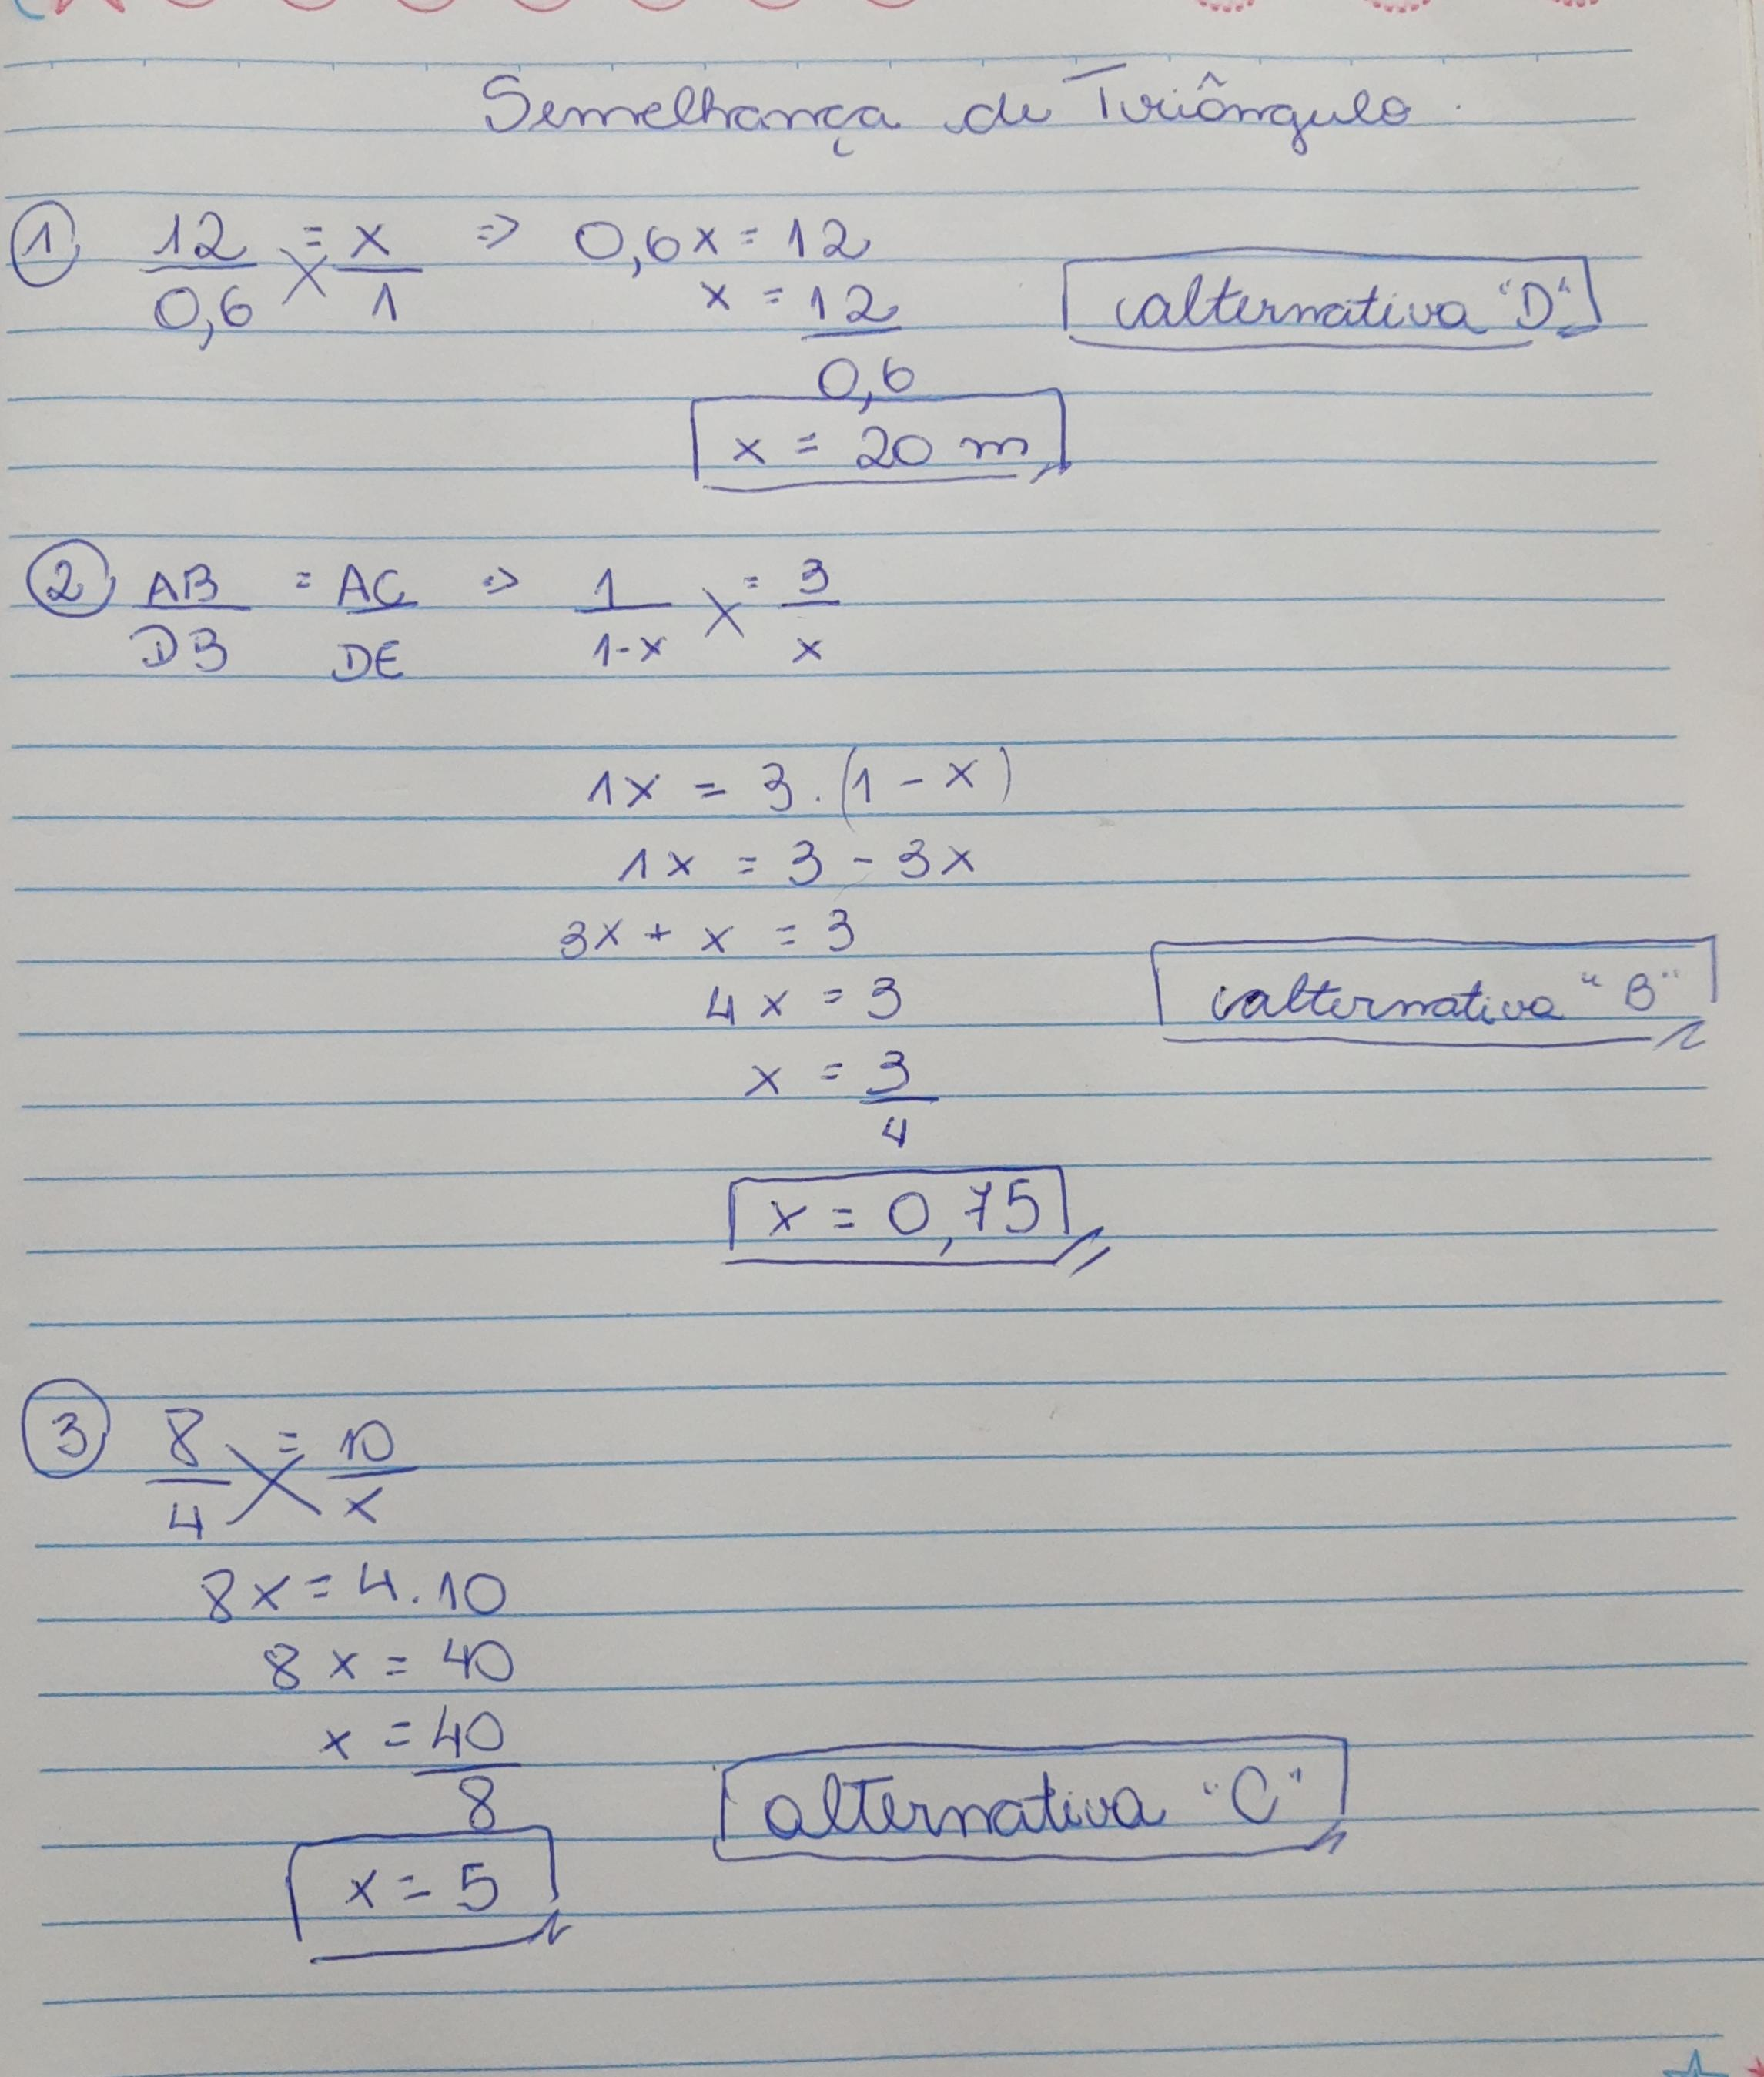 Semelhança de Triângulo.
① 12/0,6 = x/1 => 0,6x = 12
x = 12/0,6
alternativa "D"
x = 20 m
② AB/DB = AC/DE => 1/1-x = 3/x
1x = 3.(1-x)
1x = 3 - 3x
3x + x = 3
4x = 3
alternativa "B"
x = 3/4
x = 0,75
③ 8/4 = 10/x
8x = 4.10
8x = 40
x = 40/8
alternativa "C"
x = 5